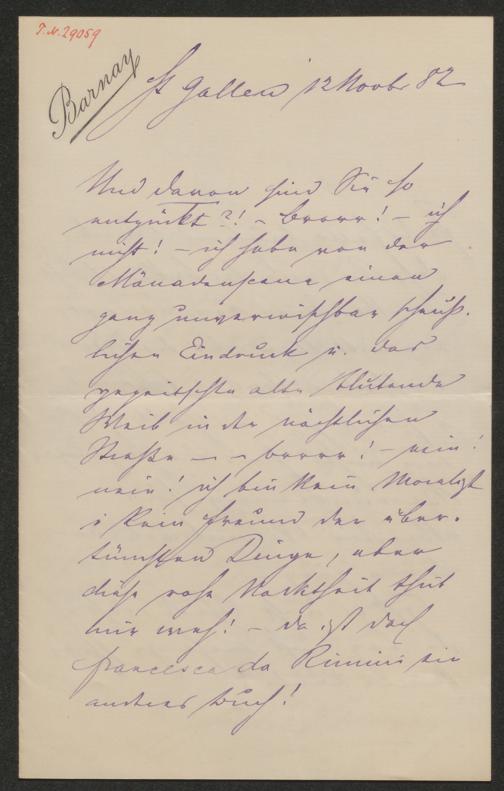 T.N. 29059
Barnay
St Gallen 12 Novbr 82
Und davon sind Sie so
entzückt?! – brrrr! – ich
nicht! – ich habe von der
Mänadenscene einen
ganz unverwischbar scheuß-
lichen Eindruck u. das
gepeitschte alte blutende
Weib in der nächtlichen
Straße — – brrrr! – nein!
nein! ich bin kein Moralist
u kein Freund der über-
tünchten Dinge, aber
diese rohe Nacktheit thut
mir weh! – da ist doch
Francesca da Rimini ein
anderes Buch!